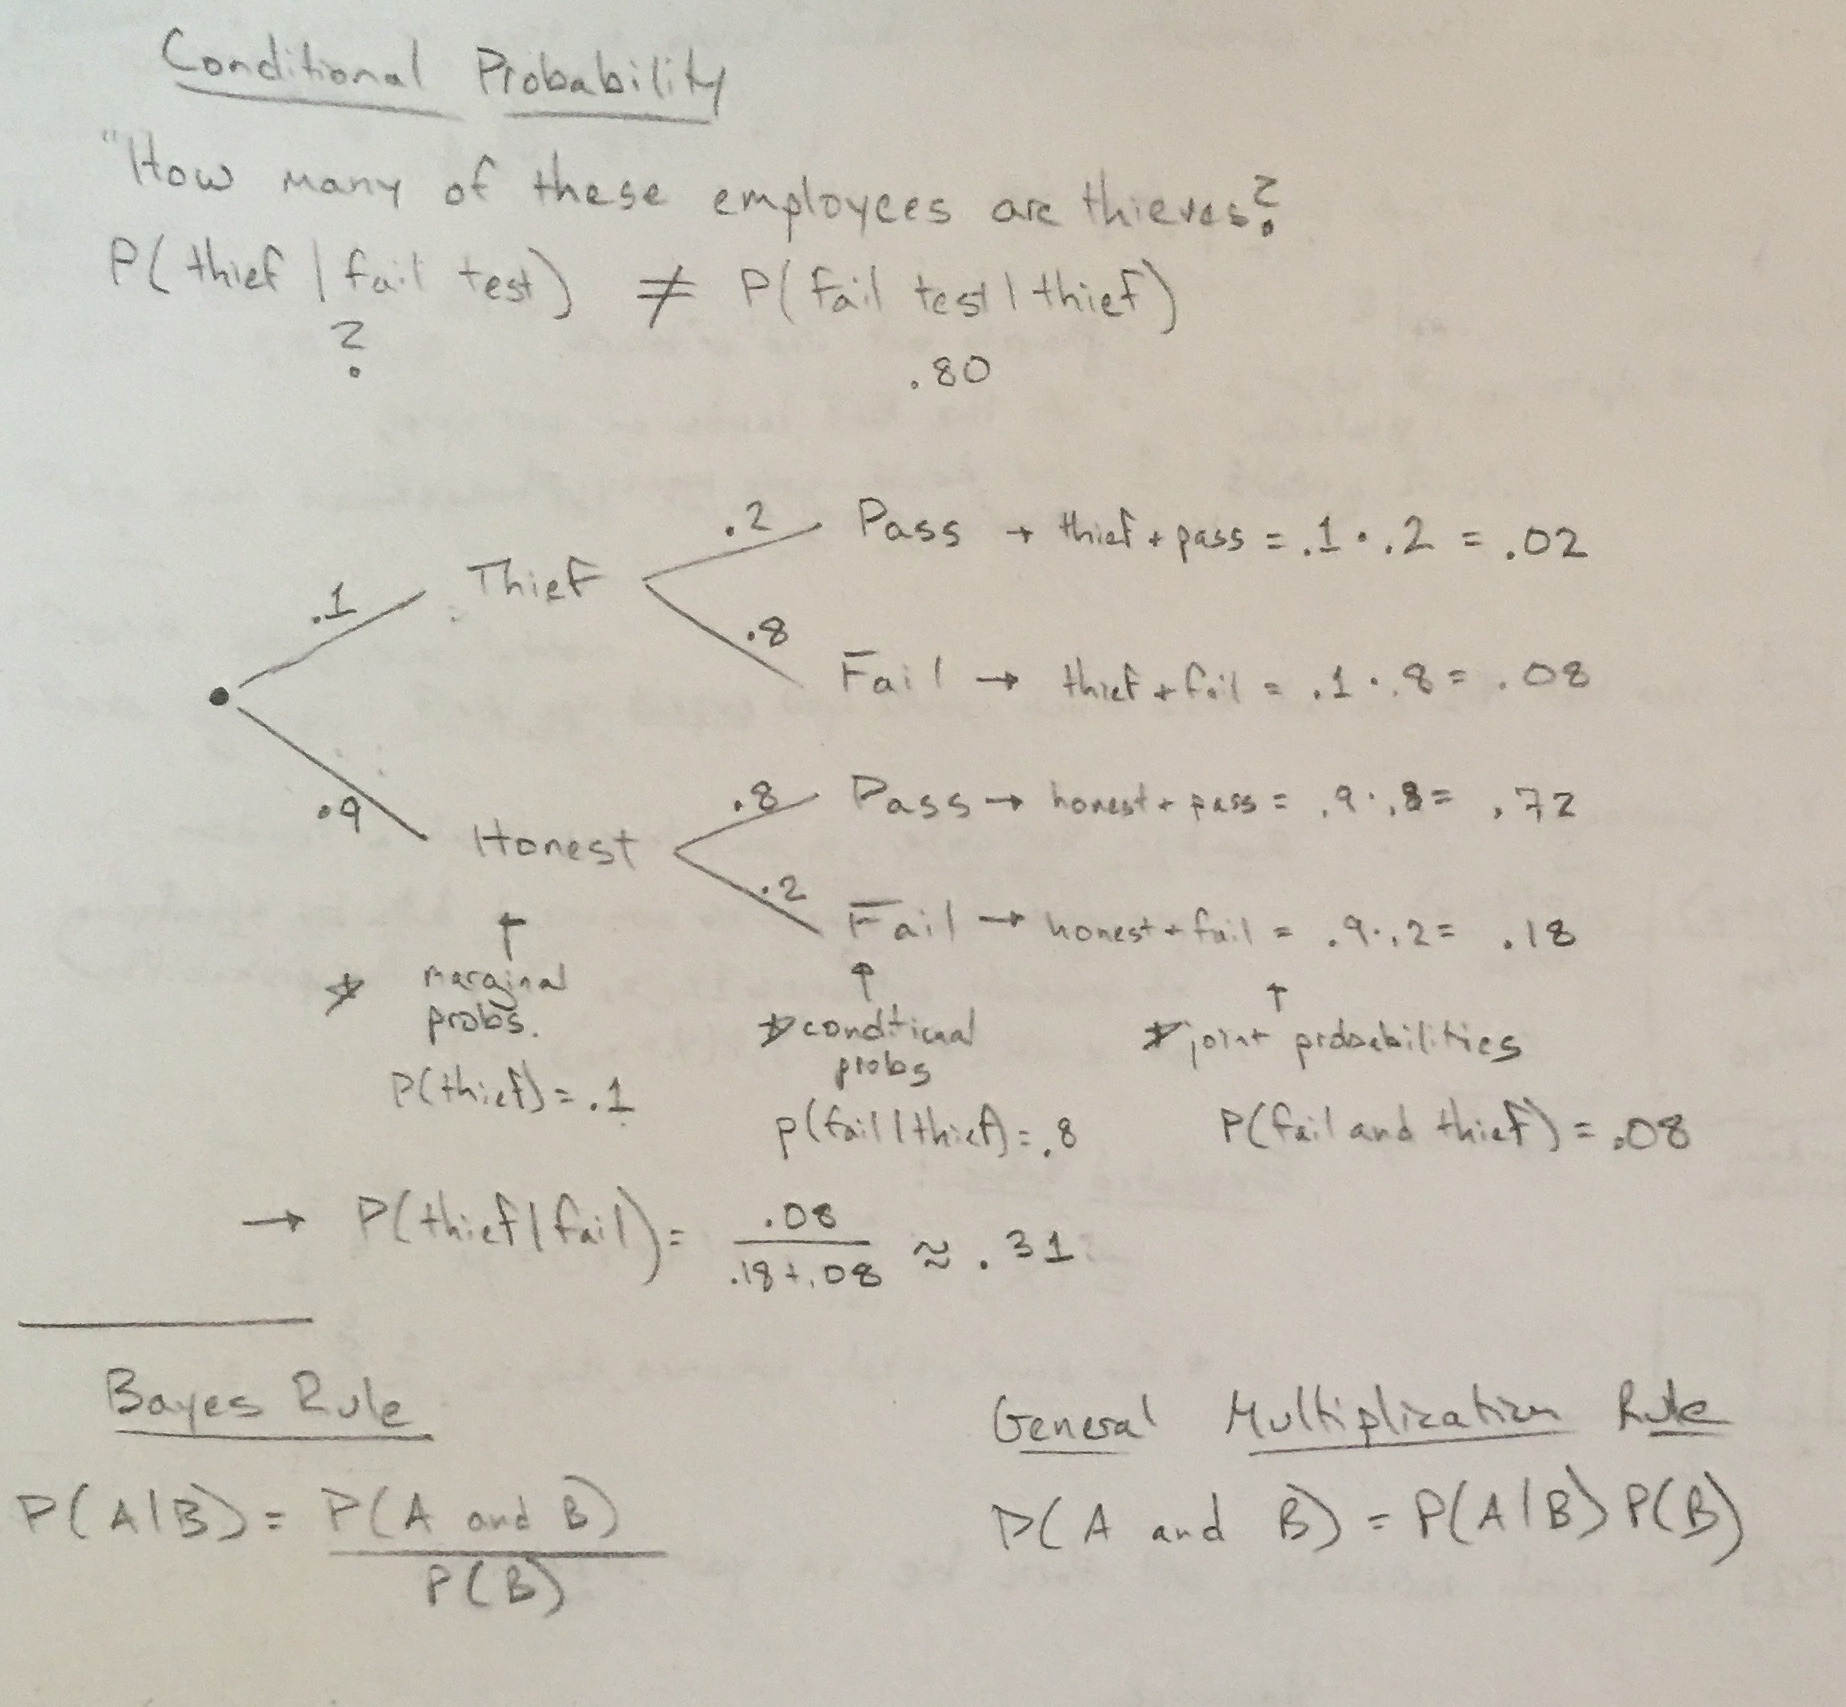 Conditional Probability
"How many of these employees are thieves?
P(thief | fail test) ≠ P(fail test | thief)
? .80
.2 Pass → thief + pass = .1 · .2 = .02
.1 Thief
.8 Fail → thief + fail = .1 · .8 = .08
.8 Pass → honest + pass = .9 · .8 = .72
.9 Honest
.2 Fail → honest + fail = .9 · .2 = .18
↑ ↑ ↑
☆ marginal probs. ☆ condticnal probs ☆ joint probabilities
P(thief) = .1 p(fail | thief) = .8 P(fail and thief) = .08
→ P(thief | fail) = .08 / .18 + .08 ≈ .31
Bayes Rule
P(A|B) = P(A and B) / P(B)
General Multiplication Rule
P(A and B) = P(A|B) P(B)